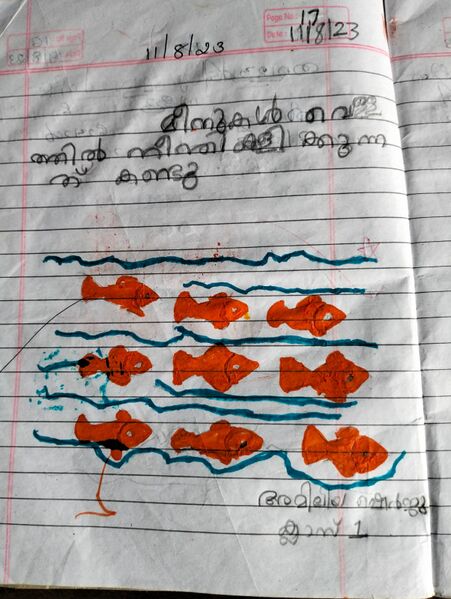 Page No: 17
Date: 11/8/23
11/8/23
മീനുകൾ വെള്ള
ത്തിൽ നീന്തി കളിക്കുന്ന
ത് കണ്ടു
അമിലിയ
ക്ലാസ് 1